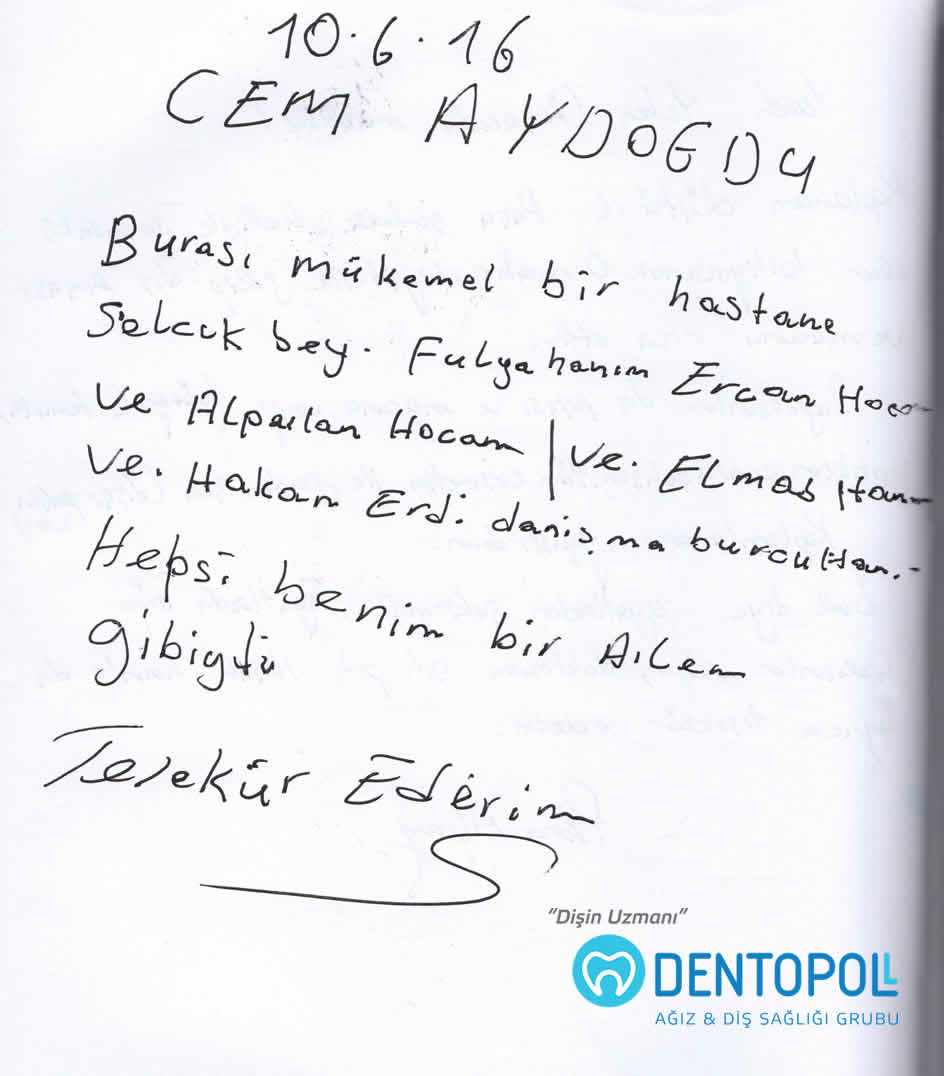 10.6.16
CEM AYDOĞDU
Burası mükemel bir hastane
Selcuk bey. Fulya hanım Ercan Hocam
Ve Alpaılan Hocam | Ve. ELmas Han
Ve. Hakan Erd. danişma burcu Han.
Hepsi benim bir AiLem
gibiydi
Teşekür Ederim
"Dişin Uzmanı"
DENTOPOLL
AĞIZ & DİŞ SAĞLIĞI GRUBU